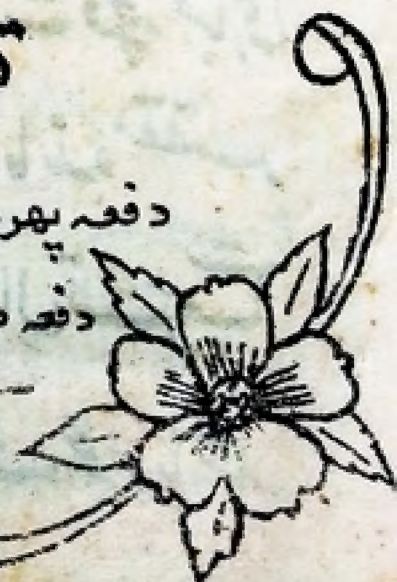 دفعہ پھر
دفعہ